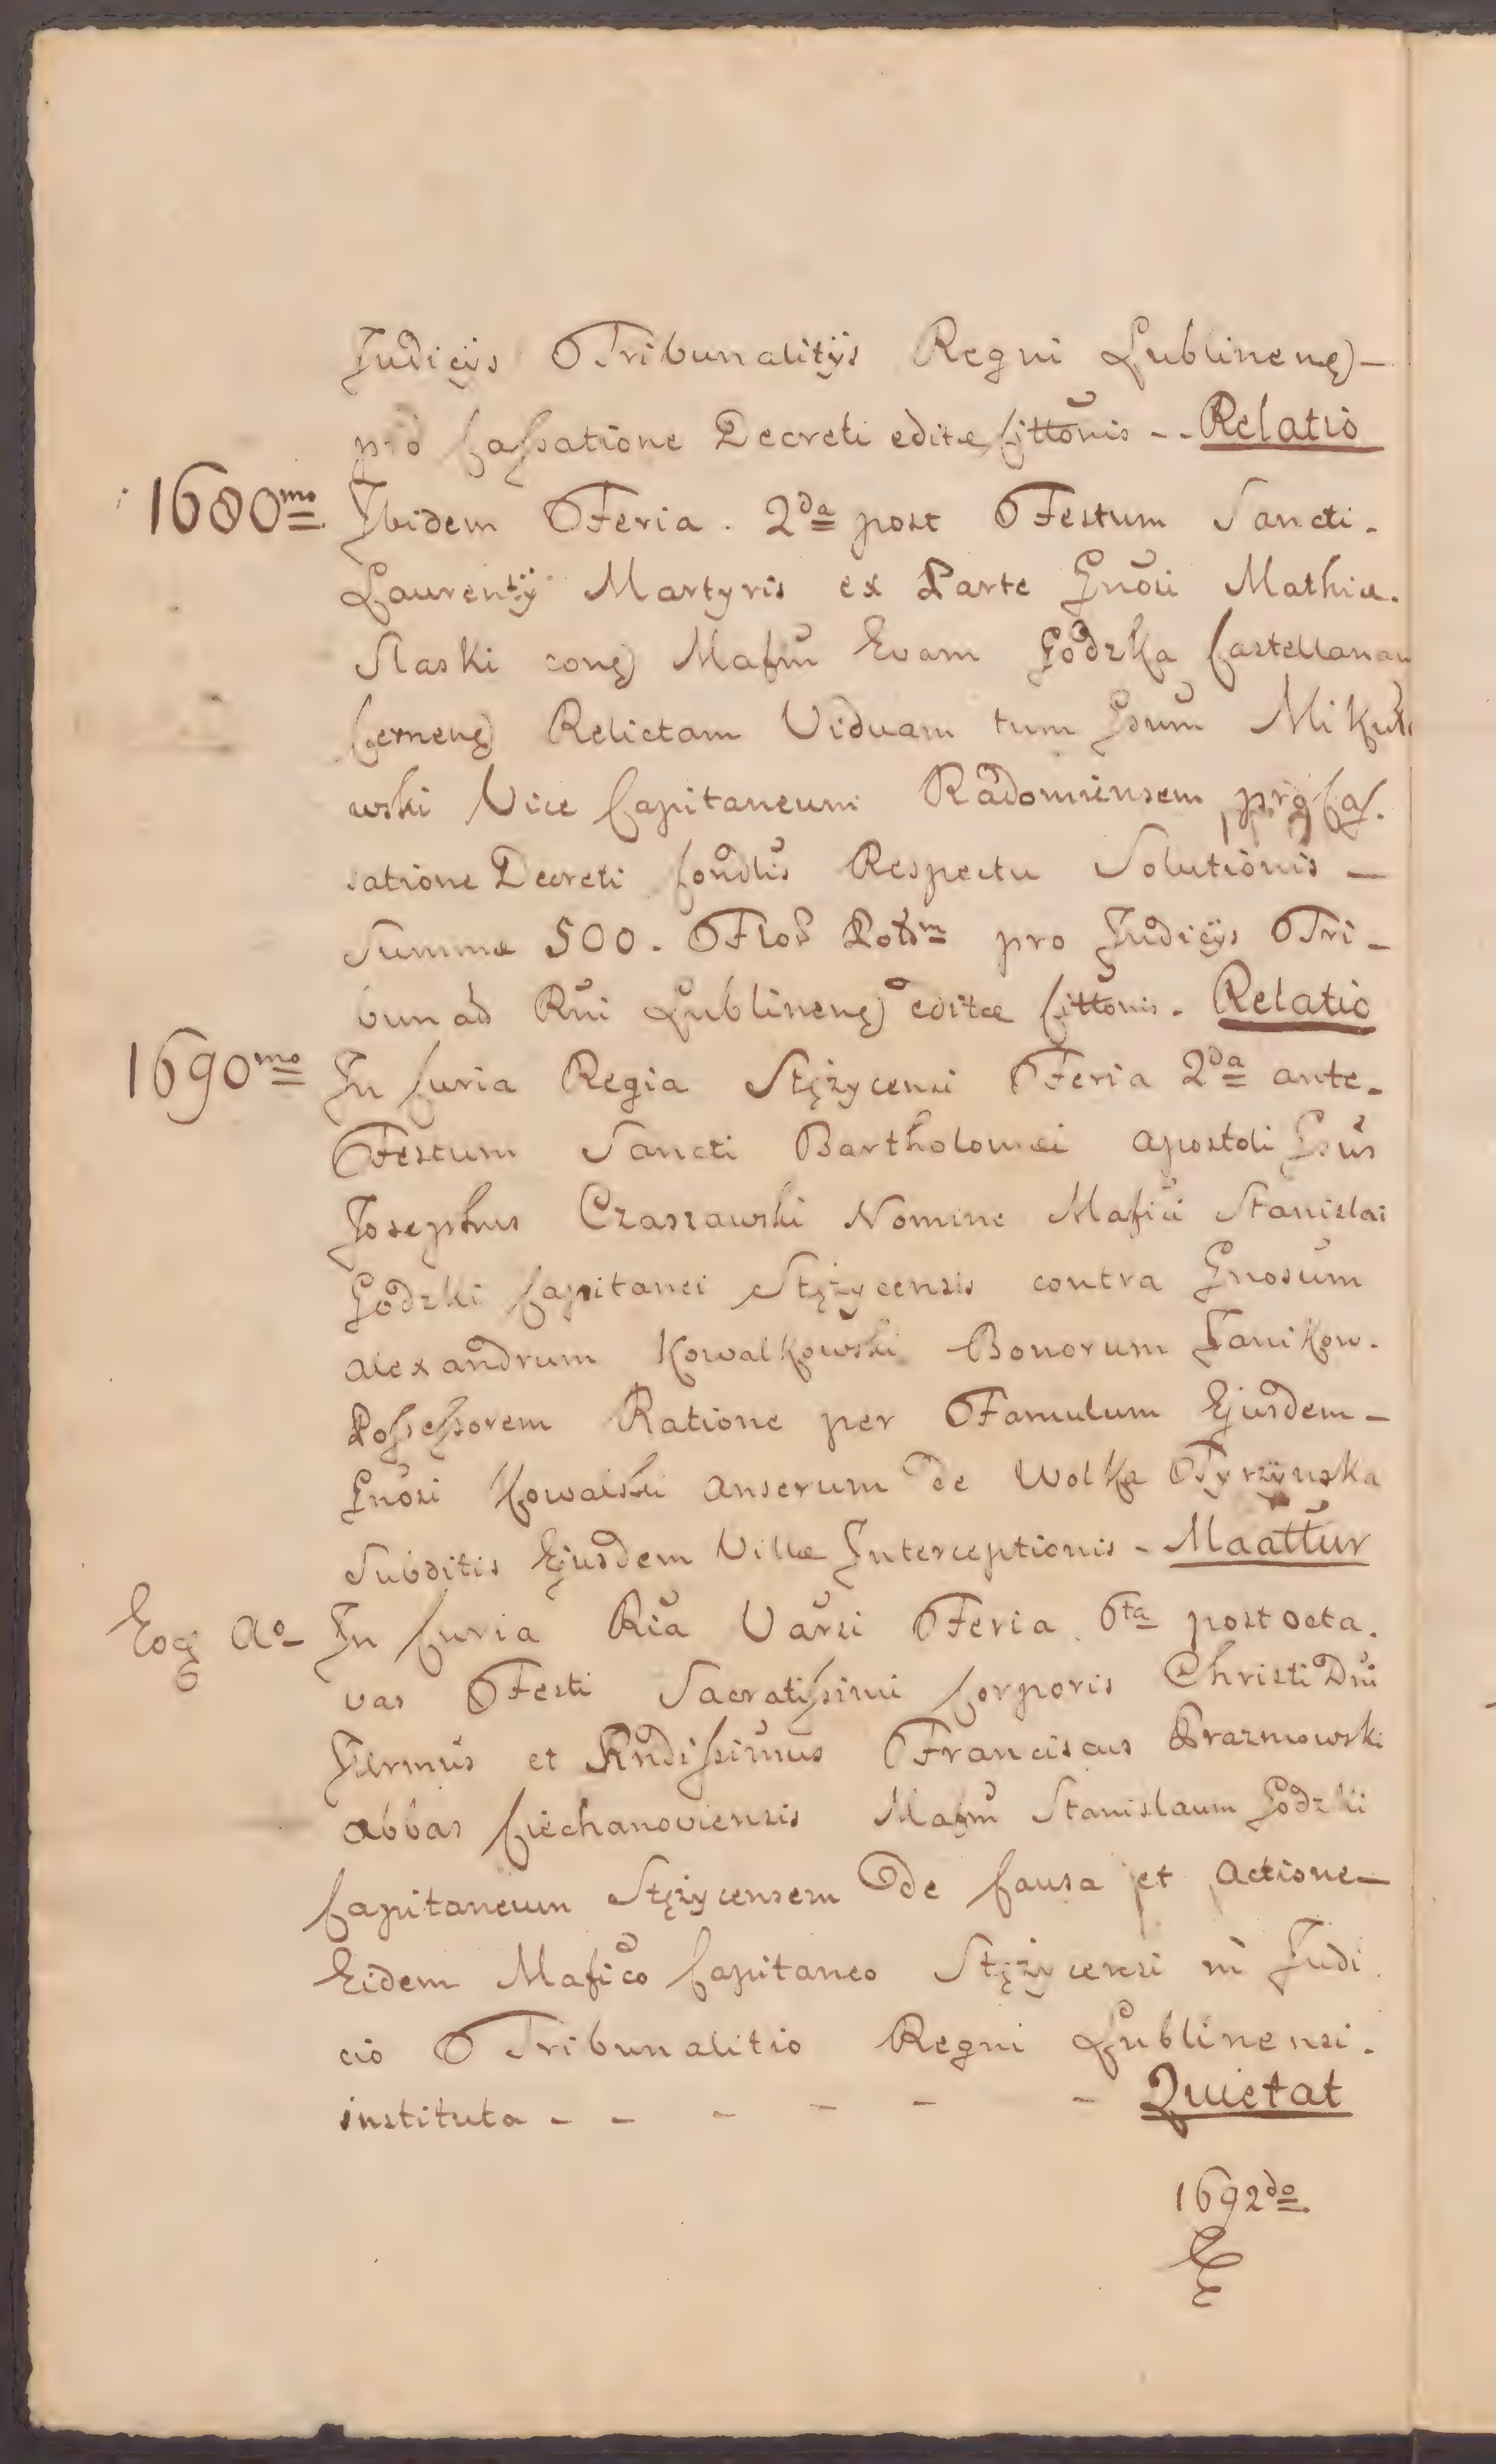 Judicÿs Tribunalitÿs Regni Lublineng) –
pro Cassatione Decreti editæ Cittõnis - - Relatio
1680mo Ibidem Feria . 2da post Festum Sancti -
Laurentÿ Martyris ex Parte Gnõsi Mathiæ -
Slaski cong) Mafm̃ Evam Godzka Castellanam
Cerneng) Relictam Viduam tum Gsum̃
wski Vice Capitaneum Radomiensem pro Cas-
satione Decreti Condtis Respectu Solutionis –
Summæ 500 . Flo Pol pro Judicÿs Tri -
bunad Rñi Lublineng) editæ Cittõnis - Relatio
1690mo In Curia Regia Stężycensi Feria 2da ante -
Festum Sancti Bartholomæi Apostoli Gsus̃
Josephus Czaszawski Nomine Mafici Stanislai
Godzki Capitanei Stężycensis contra Gnosum
Alexandrum Kowalkowski Bonorum Janikow -
Possessorem Ratione per Famulum Ejusdem –
Gnõsi Kowalski anserum de Wolka Tyrzÿnska
Subditis Ejusdem Villæ Interceptionis - Maattur
Eog Ao – In Curia Riã Varsi Feria 6ta post octa -
vas Festi Sacratissimi Corporis Christi Dni
Illrmus et Rndissimus Franciscus Prazmowski
Abbas Ciechanoviensis Mafm̃ Stanislaum Godzki
Capitaneum Stężycensem de Causa et Actione –
Eidem Mafico Capitaneo Stężycensi in Judi
cio Tribunalitio Regni Lublinensi -
instituta - - - - - - Quietat
1692do